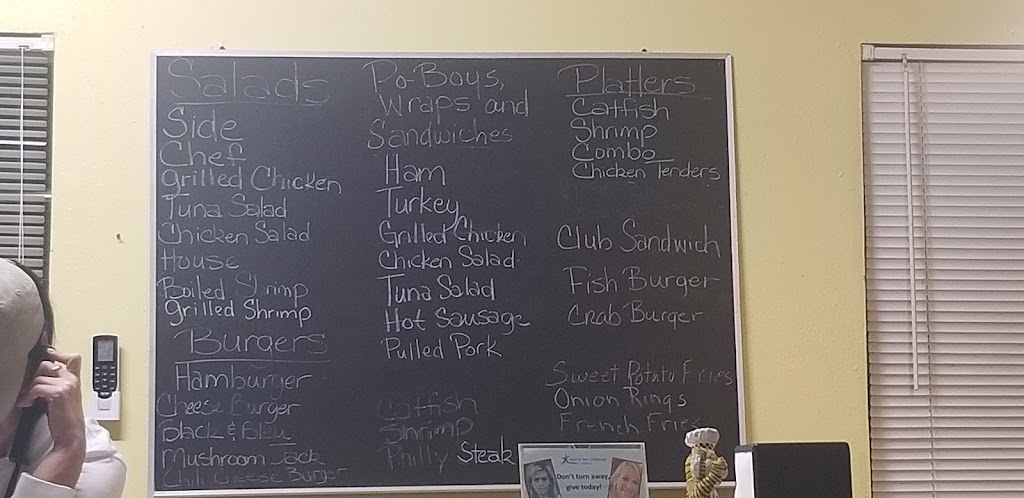 Salads
Side
Chef
Grilled Chicken
Tuna Salad
Chicken Salad
House
Boiled Shrimp
Grilled Shrimp
Burgers
Hamburger
Cheese Burger
Black & Bleu
Mushroom Jack
Chili Cheese Burger
Po-Boys,
Wraps and
Sandwiches
Ham
Turkey
Grilled Chicken
Chicken Salad
Tuna Salad
Hot Sausage
Pulled Pork
Catfish
Shrimp
Philly Steak
Platters
Catfish
Shrimp
Combo
Chicken Tenders
Club Sandwich
Fish Burger
Crab Burger
Sweet Potato Fries
Onion Rings
French Fries
Don't turn away,
give today!